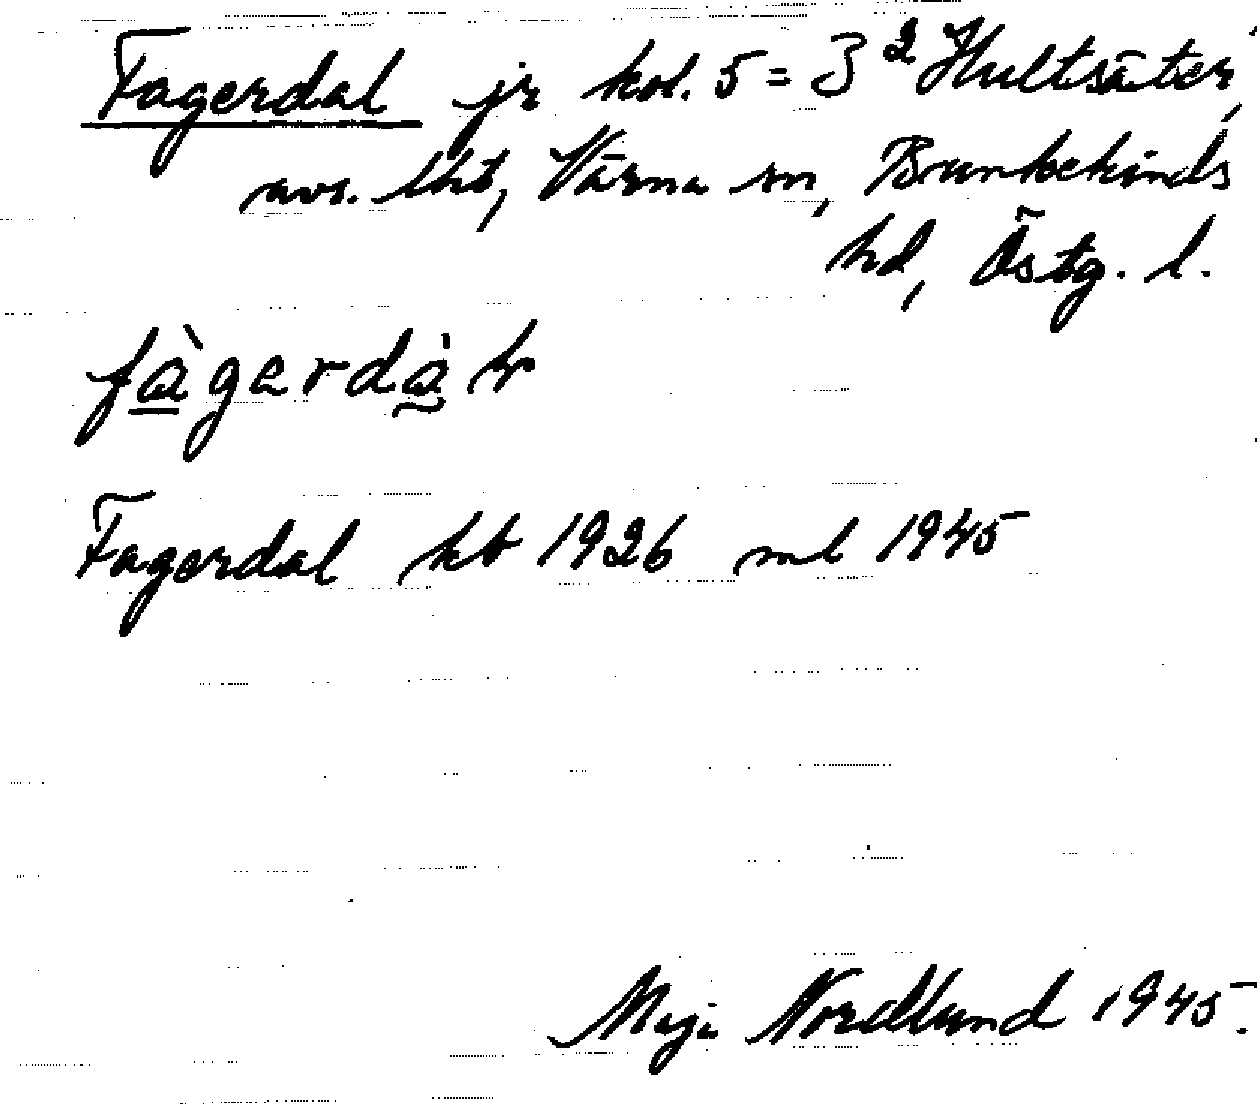 Fagerdal jr kol. 5 = 3² Hultsäter,
avs. lht, Värna sn, Bankekinds
hd, Östg. l.
fàgerdàɫ
Fagerdal kb 1926 ml 1945
Maja Nordlund 1945.